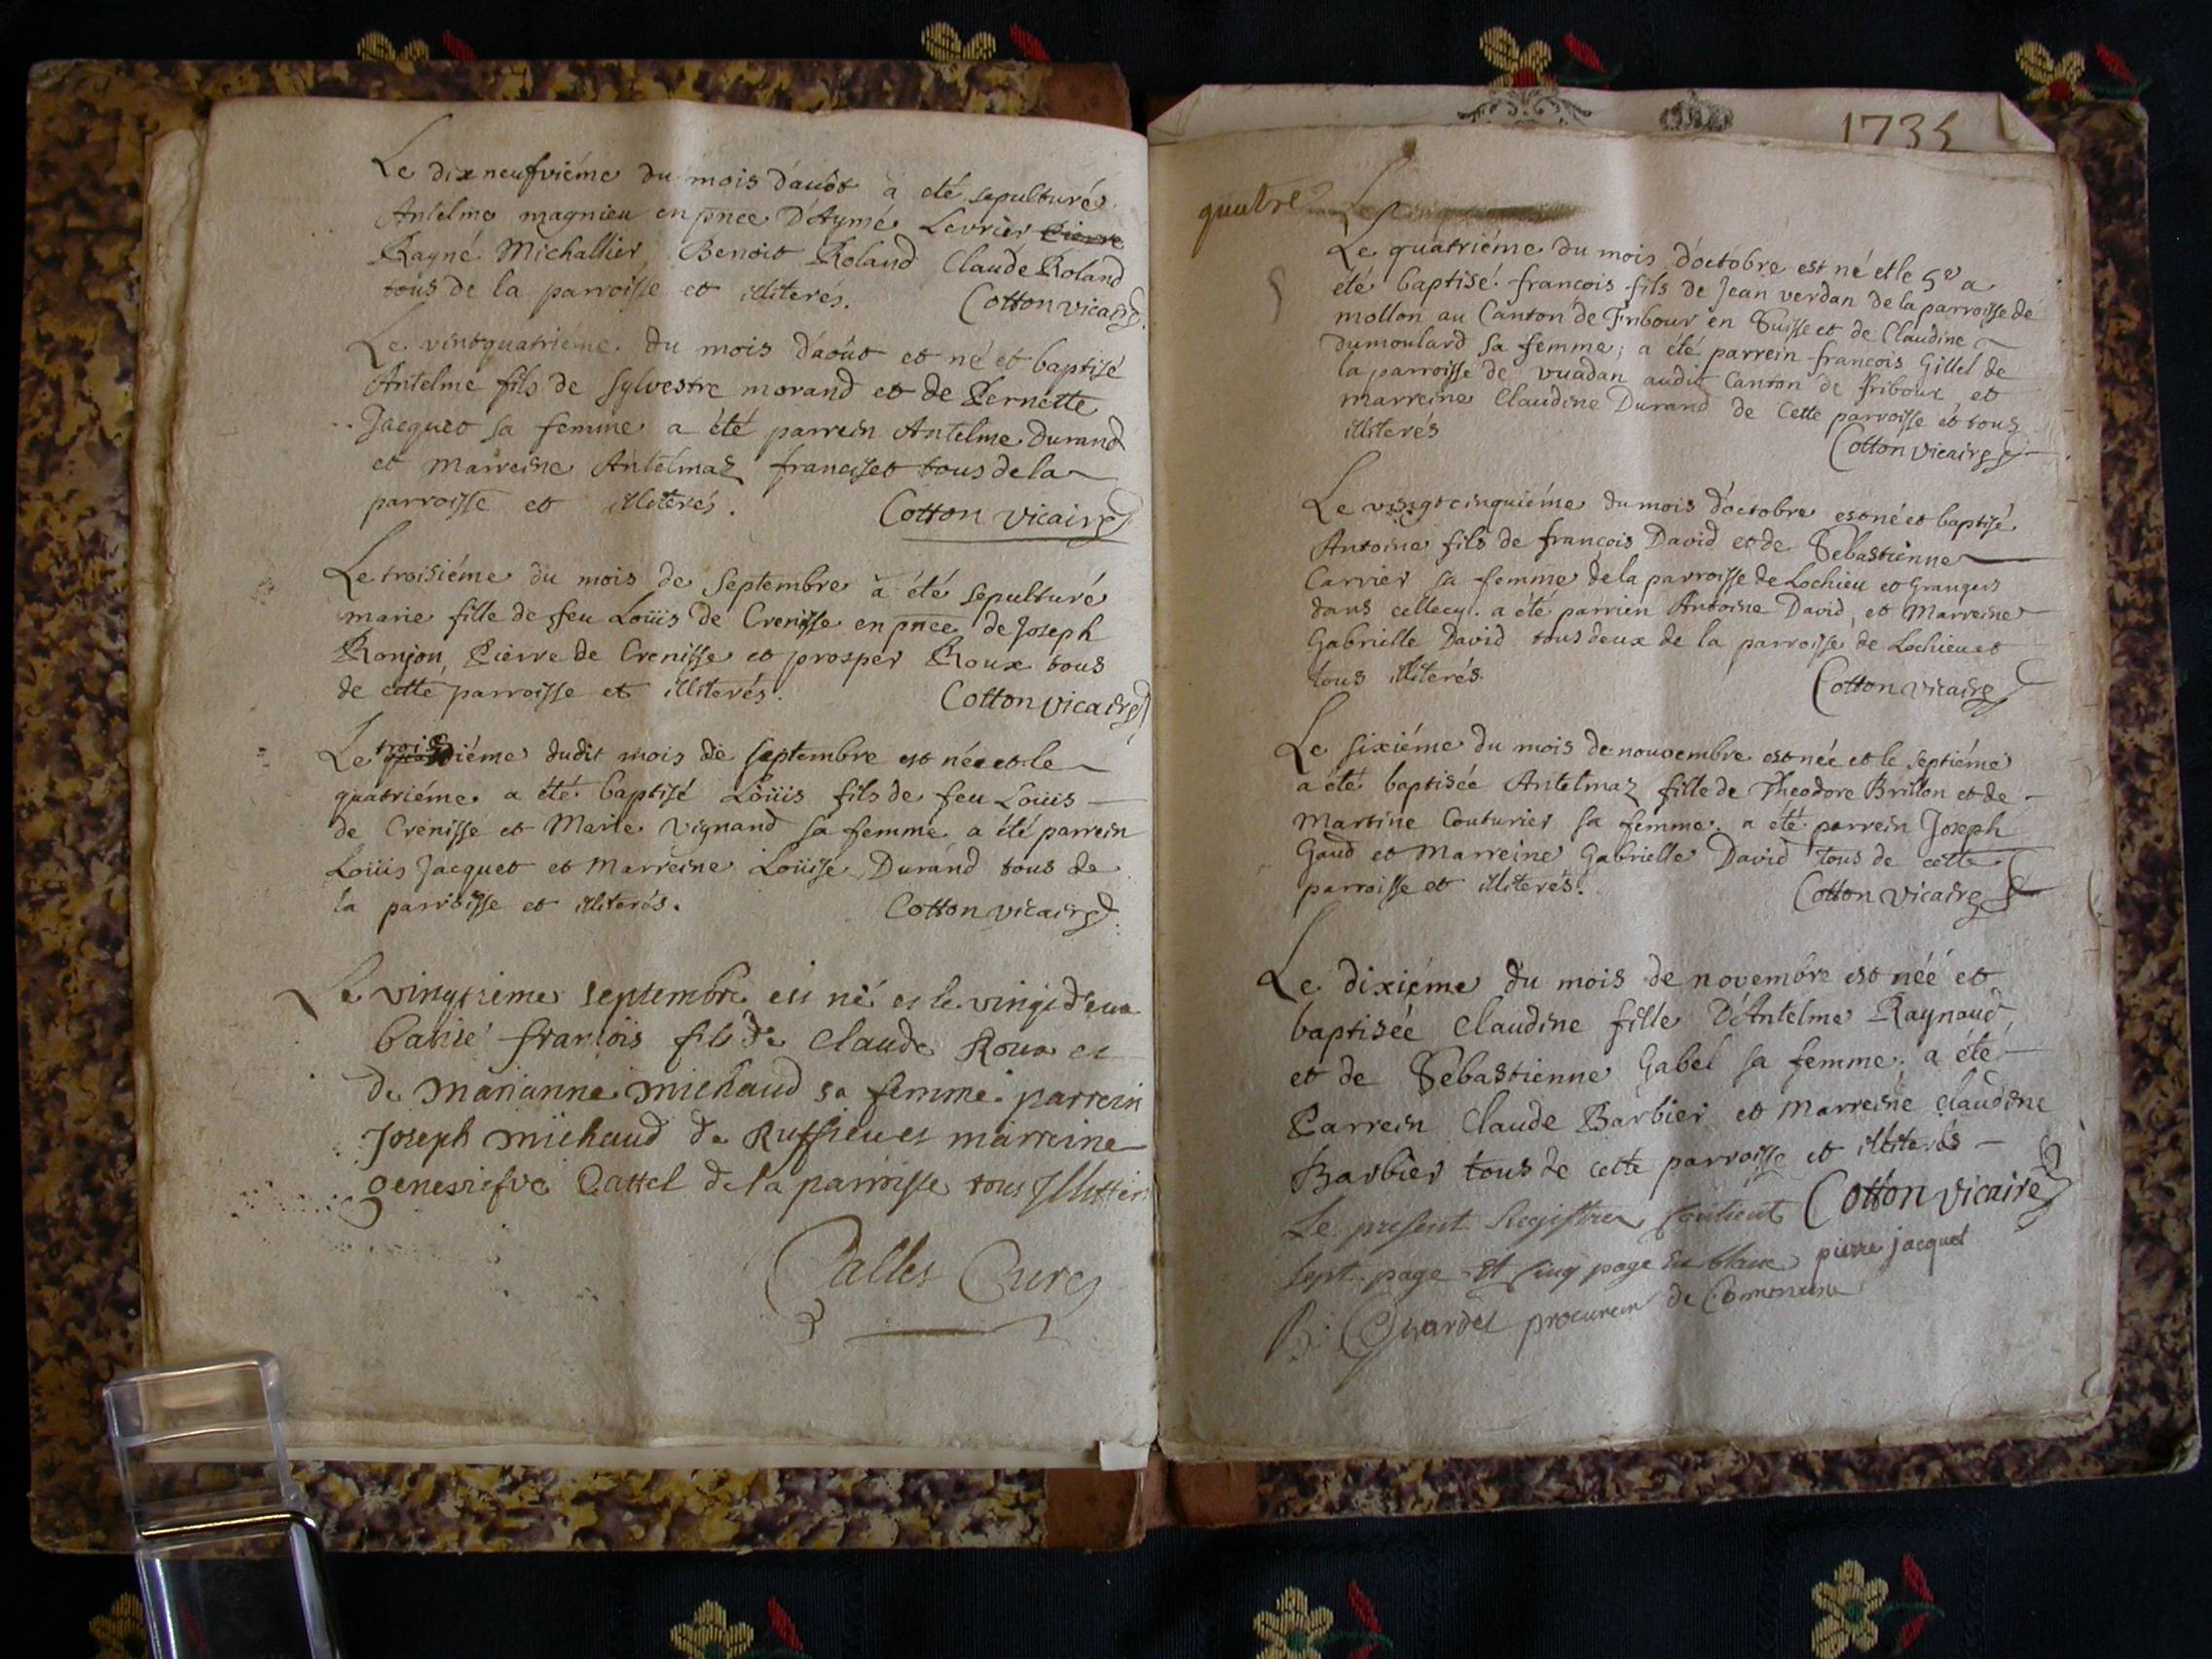 Le dixneufviéme du mois d'auôt à eté sepulturé
Antelme magnieu en pnce D'Aymé Levrier Pierre
Rayné Michallier, Benoit Roland Claude Roland
tous de la parroisse et illiterés.
Cotton vicaire
Le vintquatriéme du mois d'août et né et baptisé
Antelme fils de sylvestre morand et de Pernette
Jacquet sa femme a été parrein Antelme Durand
et marreine Antelmaz franciset tous de la
parroisse et illiterés.
Cotton vicaire
Le troisiéme du mois de septembre à été sepulturé
marie fille de feu Loüis de Crenisse en pnce de Joseph
Ronjon, Pierre de Crenisse et prosper Roux tous
de cette parroisse et illiterés.
Cotton vicaire
Le troisiéme dudit mois de septembre est né et le
quatriéme a été baptisé Loüis fils de feu Loüis
de Crenisse et Marie Vignand sa femme a été parrein
Loüis Jacquet et Marreine Loüise Durand tous de
la parroisse et illiterés.
Cotton vicaire
Le vingtieme septembre est né et le vingt deux
batisé francois fils de Claude Roux et
de marianne michaud sa femme. parrein
Joseph michaud de Ruffieu et marreine
geneviefve Dattel de la parroisse tous Illitter
Curé
1735
quatre
Le quatriéme du mois d'octobre est né et le 5e a
été baptisé francois fils de Jean verdan de la parroisse de
mollon au Canton de Fribour en Suisse et de Claudine
Dumoulard sa femme; a été parrein francois Gillel de
la parroisse de vuadan audit Canton de fribour et
marreine Claudine Durand de Cette parroisse et tous
illiterés
Cotton vicaire
Le vingtcinquiéme du mois d'octobre est né et baptisé
Antoine fils de francois David et de Sébastienne
Carrier sa femme de la parroisse de Lochieu et Grangers
dans cellecy. a été parrien Antoine David, et Marreine
Gabrielle David tous deux de la parroisse de Lochieu et
tous illiterés.
Cotton vicaire
Le sixiéme du mois de nouvembre est née et le septiéme
a été baptisée Antelmaz fille de Theodore Brillon et de
Martine Couturier sa femme. a été parrein Joseph
Gaud et Marreine Gabrielle David tous de cette
parroisse et illiterés.
Cotton vicaire
Le dixiéme du mois de novembre est née et
baptisée Claudine fille D'Antelme Raynaud
et de Sébastienne Gabel sa femme; a été
Parrein Claude Barbier et marreine Claudine
Barbier tous de cette parroisse et illiterés
Cotton vicaire
Le present Registre contient
sept page Et cinq page en blanc pierre jacquet
procureur de Commune